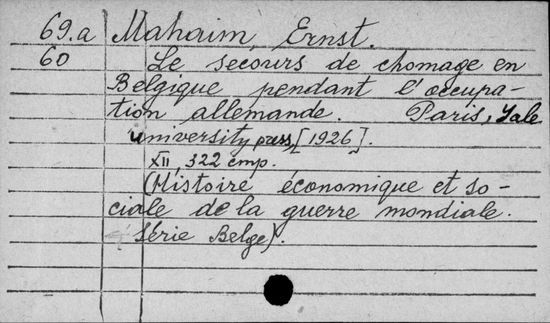 69.a Mahaim, Ernst.
60 Le secours de chomage en
Belgique pendant l'occupa-
tion allemande. Paris, Yale
university press, [1926].
XII, 322 cmp.
(Histoire économique et so-
ciale de la guerre mondiale.
Série Belge).